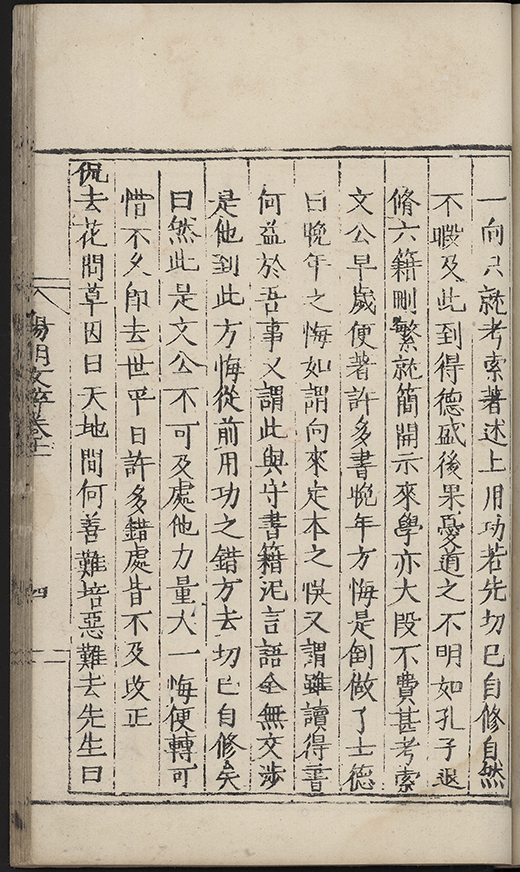 一向只就考索著述上用功若先切己自修自然
不暇及此到得德盛後果憂道之不明如孔子退
脩六籍刪繁就簡開示來學亦大段不費甚考索
文公早歲便著許多書晚年方悔是倒做了士德
曰晚年之悔如謂向來定本之悞又謂雖讀得書
何益於吾事又謂此與守書籍泥言語全無交渉
是他到此方悔從前用功之錯方去切己自修矣
曰然此是文公不可及處他力量大一悔便轉可
惜不久即去世平日許多錯處皆不及改正
侃去花間草因曰天地間何善難培惡難去先生曰
陽明文粹卷十一
四